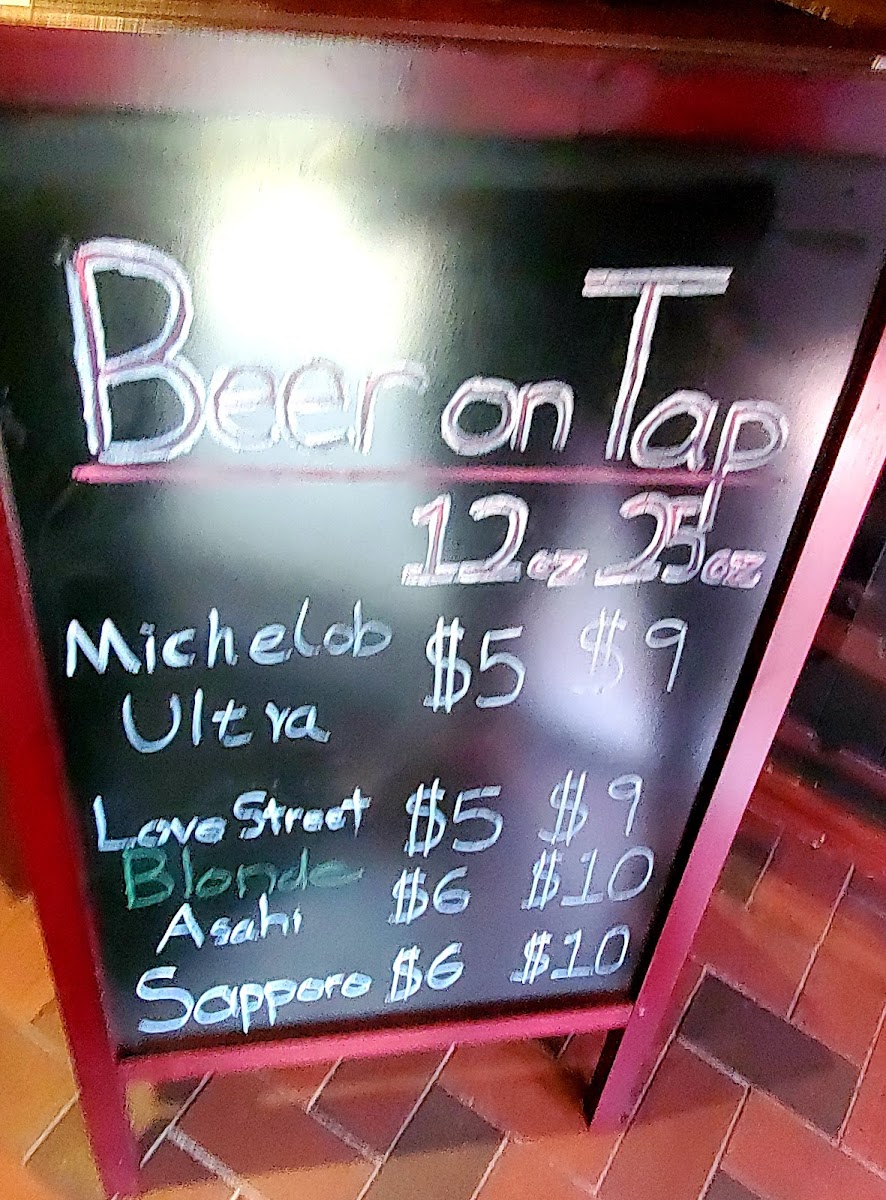 Beer on Tap
12oz 25oz
Michelob $5 $9
Ultra
Love Street $5 $9
Blonde
Asahi $6 $10
Sapporo $6 $10